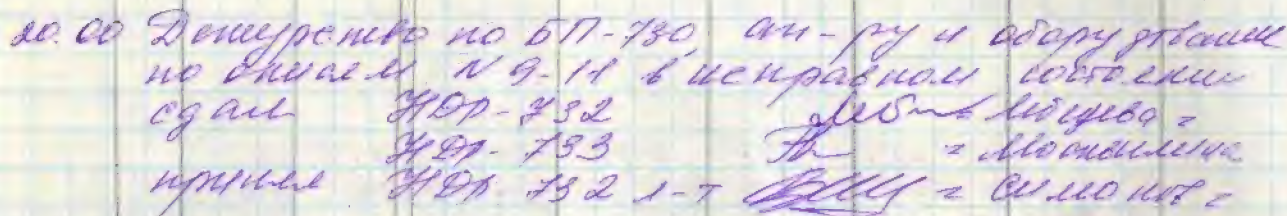 20.00 Дежурство по БП-730, ап-ру и оборудование
по описям N 9-11 в исправном состоянии
сдали НДР-732
НДР-733
принял НДР 732 л-т = Симонов =